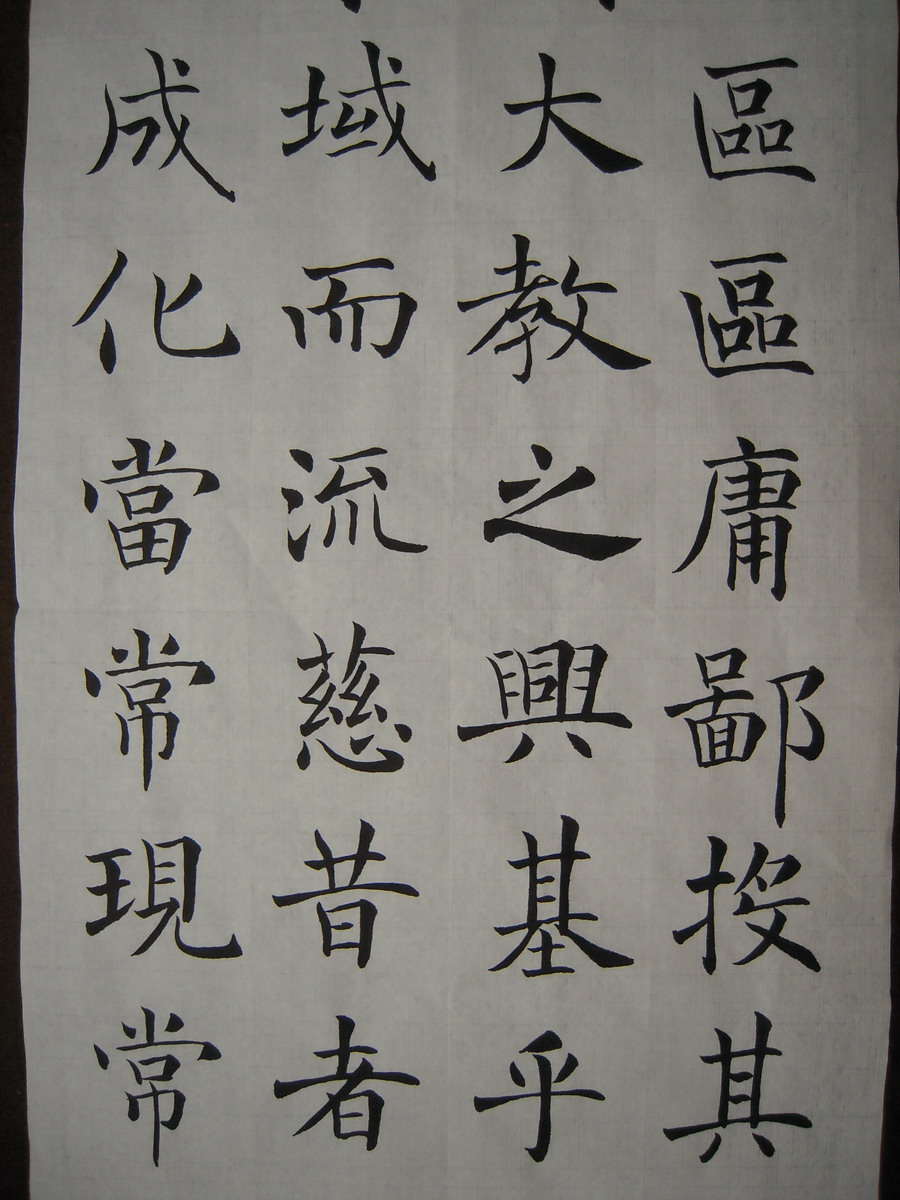 區區庸鄙投其
大教之興基乎
域而流慈昔者
成化當常現常